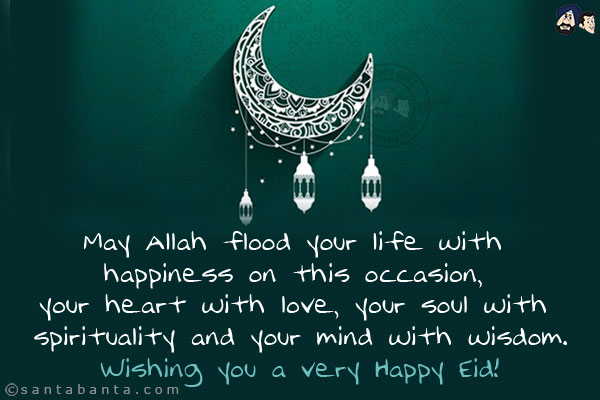 May Allah flood your life with
happiness on this occasion,
your heart with love, your soul with
spirituality and your mind with wisdom.
Wishing you a very Happy Eid!
©santabanta.com